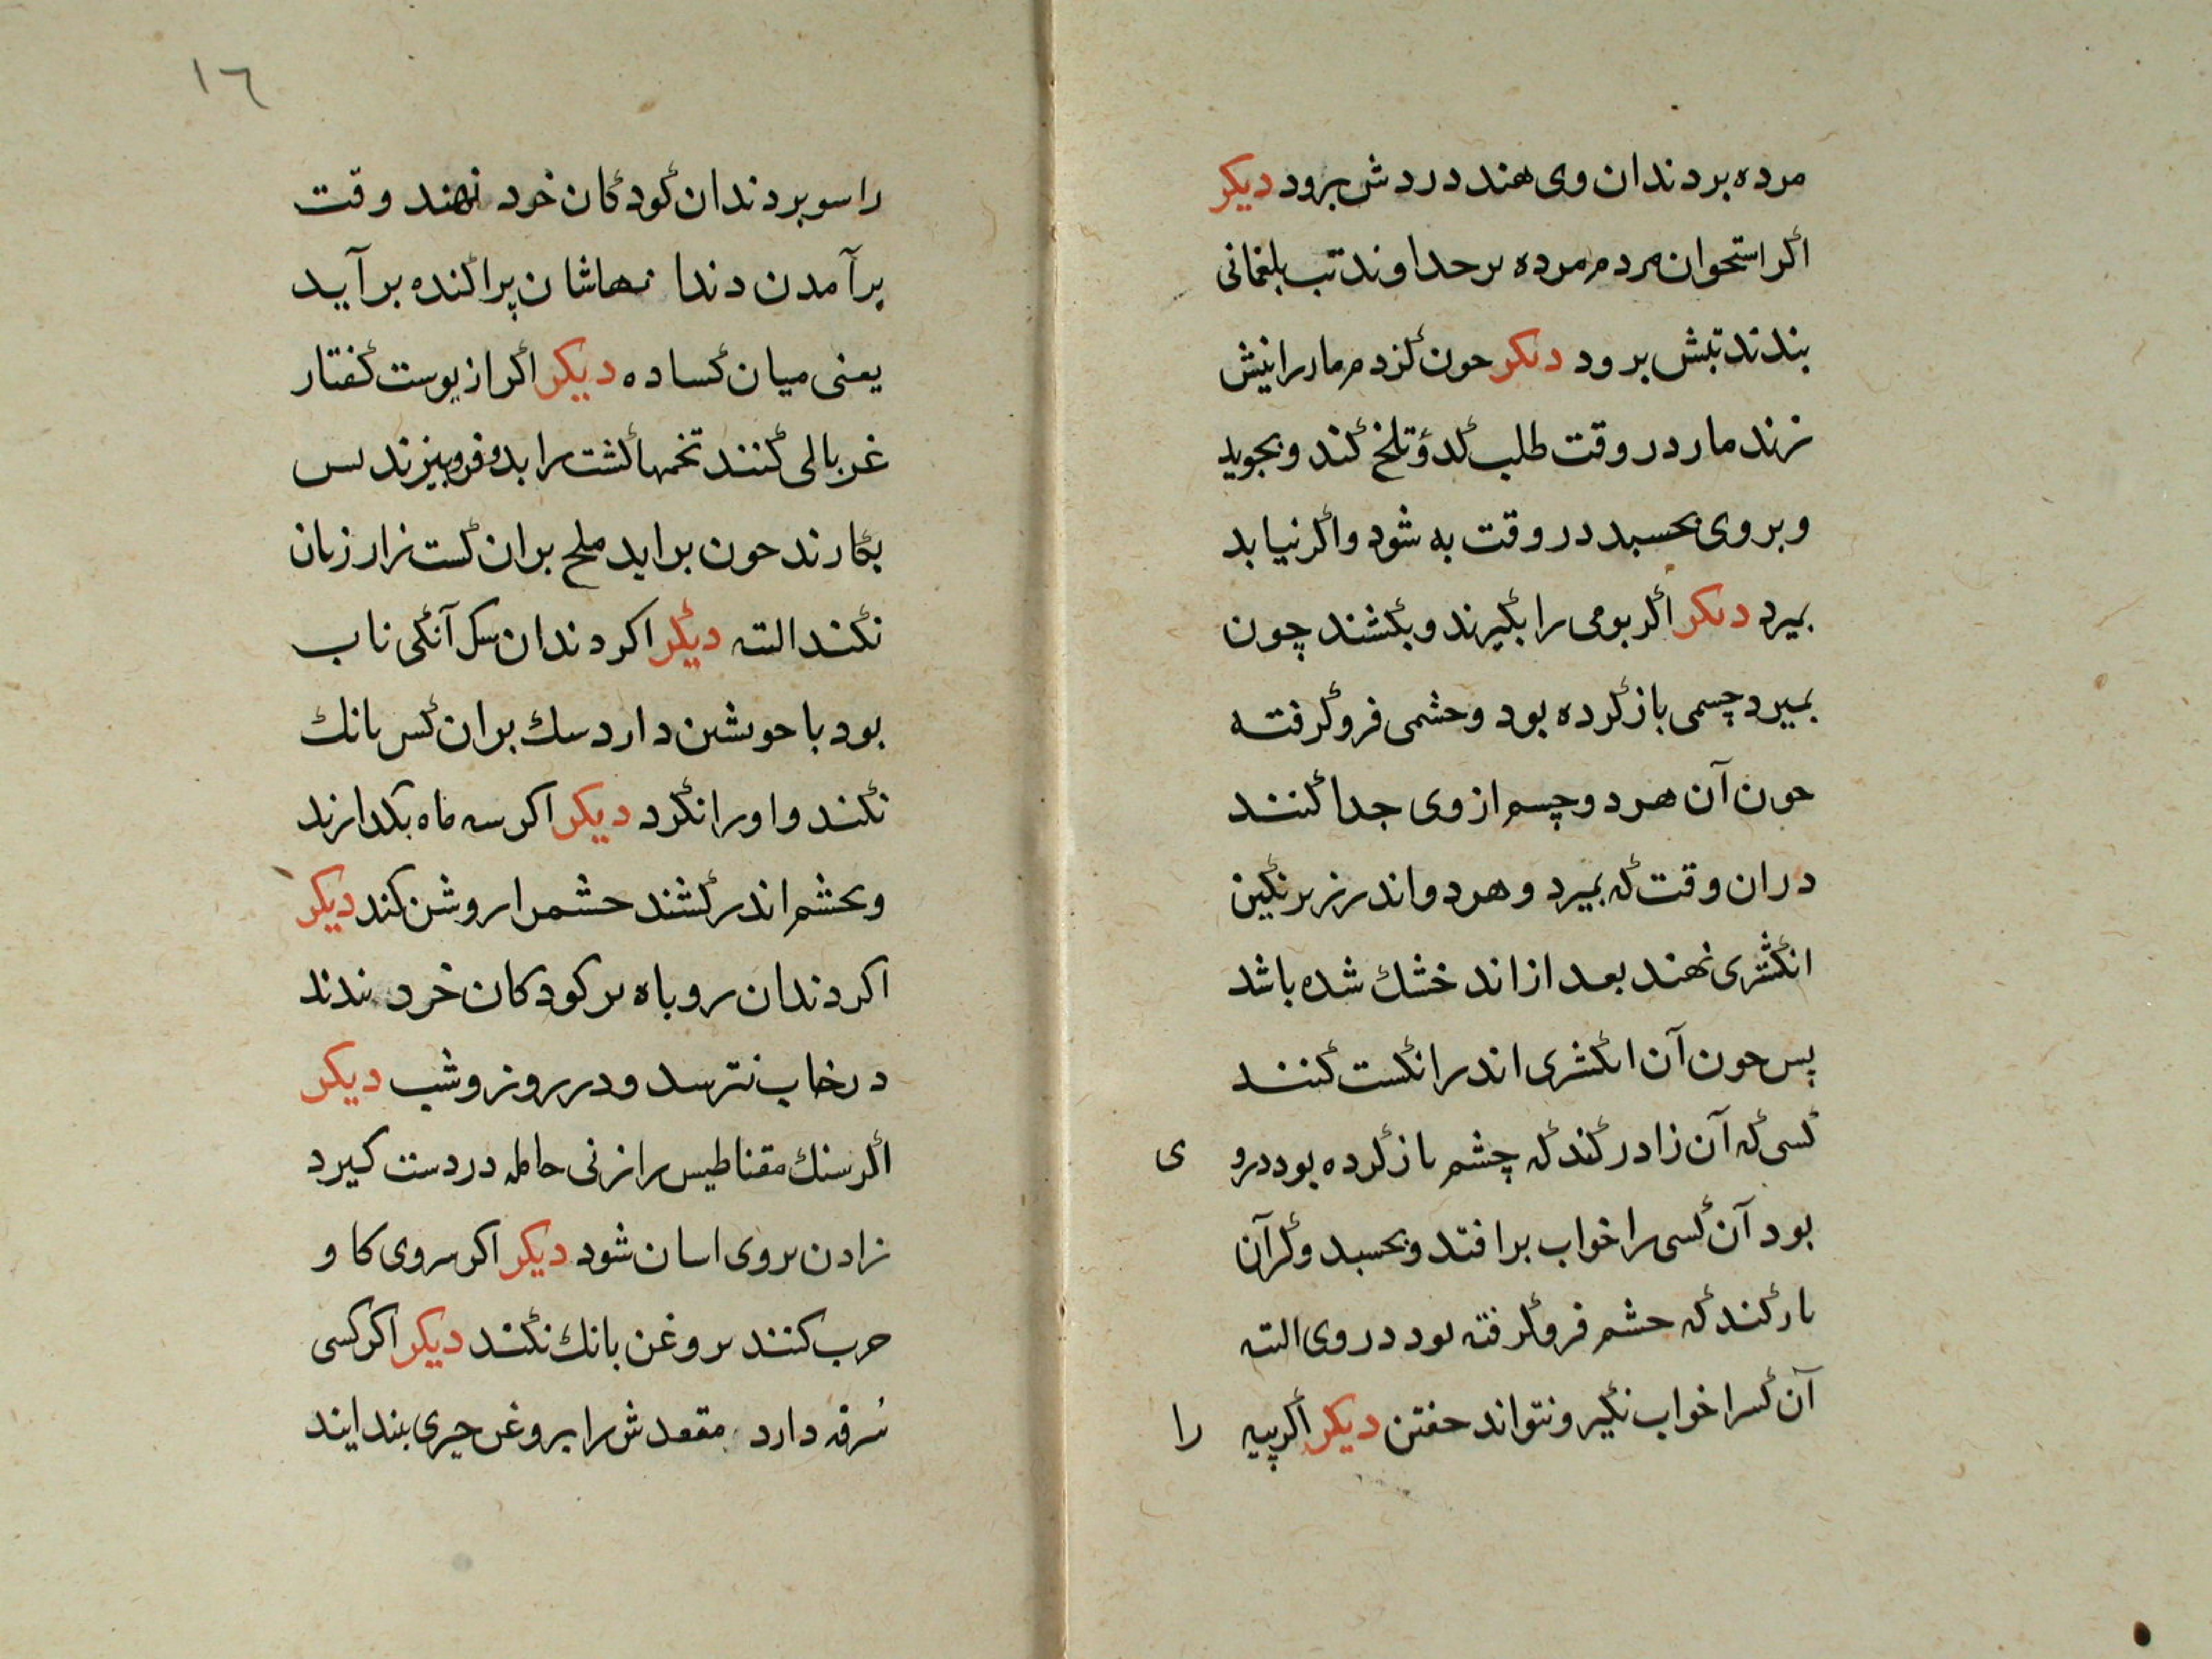 مرده بر دندان وی هند دردش برود دیکر
اکر استحوان مردم مرده بر حداوند تب بلغمانی
بندند تبش برود دیکر حون کزدم مار را نیش
زند مار در وقت طلب کدؤ تلخ کند و بجوید
و بر وی بحسبد در وقت به شود و اکر نیابد
بمیرد دیکر اکر بومی را بکیرند و بکشند چون
بمیرد چسمی باز کرده بود و حشمی فرو کرفته
حون آن هر دو چسم از وی جدا کنند
دران وقت که بمیرد و هر دو اندر زیر نکین
انکشتری نهند بعد از اند خشك شده باشد
پس حون آن انکشتری اندر انکست کنند
کسی که آن زا در کند که چشم باز کرده بود در و ی
بود آن کسی را خواب برافتد و بحسبد و کر آن
بار کند که حشم فرو کرفته بود در وی البته
آن کسرا خواب نکیر و نتواند حفتن دیکر اکر پیه را
١٦
راسو بر دندان کودکان خرد نهند وقت
برآمدن دندا نهاشان پراکنده برآید
یعنی میان کساده دیکر اکر از پوست کفتار
غربالی کنند تخمها کشت را بدو فروبیزند بس
بکارند حون براید ملح بران کست زار زیان
نکند البته دیکر اکر دندان سک آنکی ناب
بود با حویشن دارد سك بران کس بانك
نکند و او را نکرد دیکر اکر سه ماه بکدازند
و بحشم اندر کشند حشم را روشن کند دیکر
اکر دندان روباه بر کودکان خرد بندند
در خاب نترسد و در روز و شب دیکر
اکر سنك مقناطیس را زنی حامله در دست کیرد
زادن بروی اسان شود دیکر اکر سروی کا و
حرب کنند بروغن بانك نکند دیکر اکر کسی
سرفه دارد مقعدش را بروغن حیری بندایند